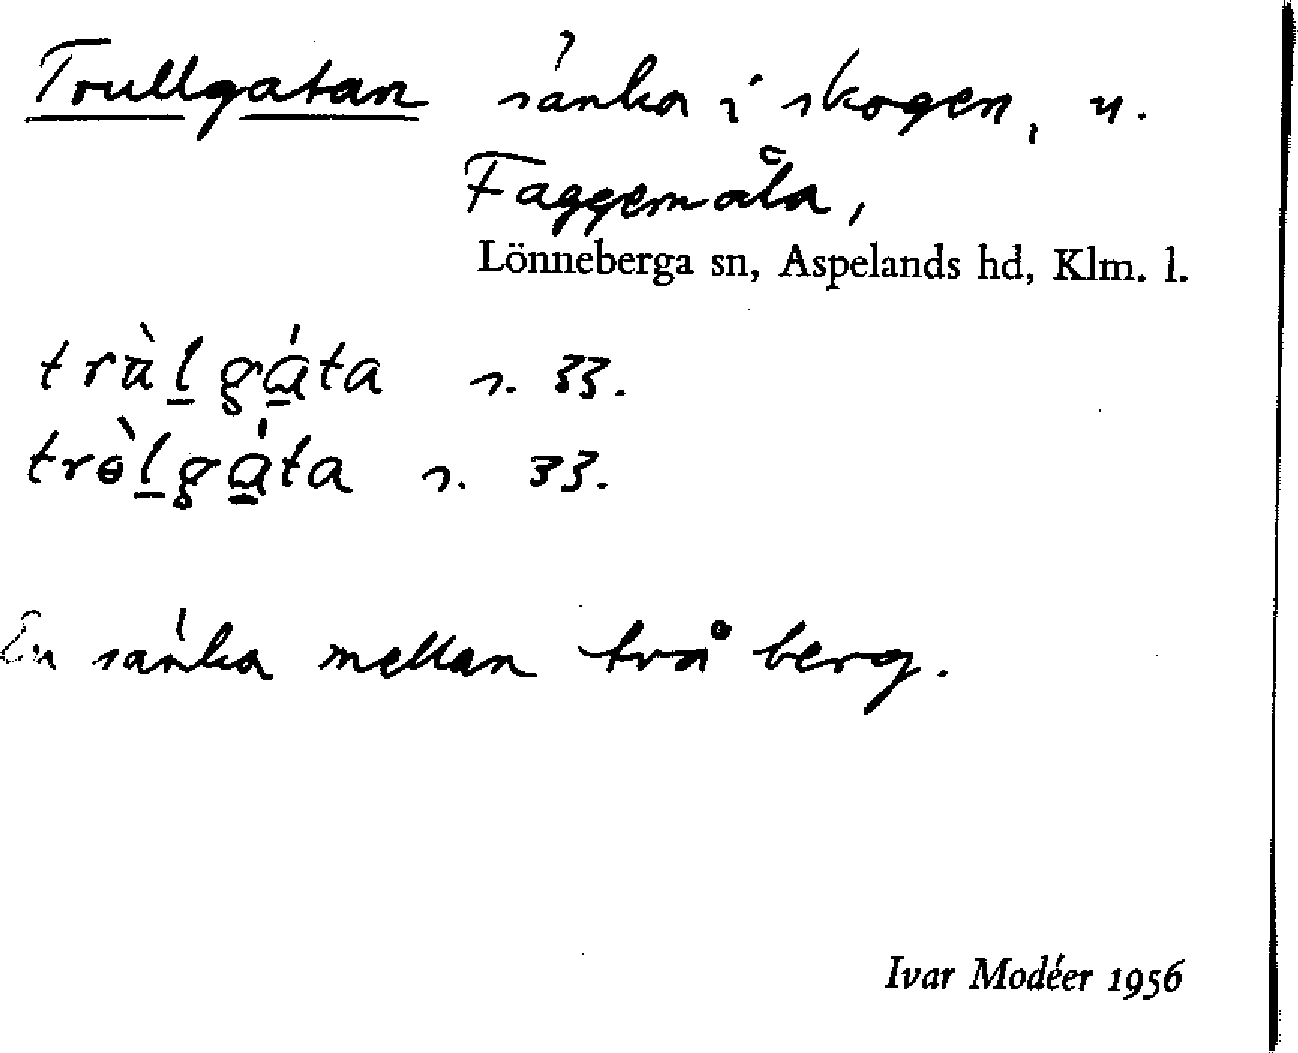 Trullgatan sänka i skogen, u.
Faggemåla,
Lönneberga sn, Aspelands hd, Klm. l.
trùl̲gá̲ta s. 33.
trɵ̀l̲gá̲ta s. 33.
En sänka mellan två berg.
Ivar Modéer 1956